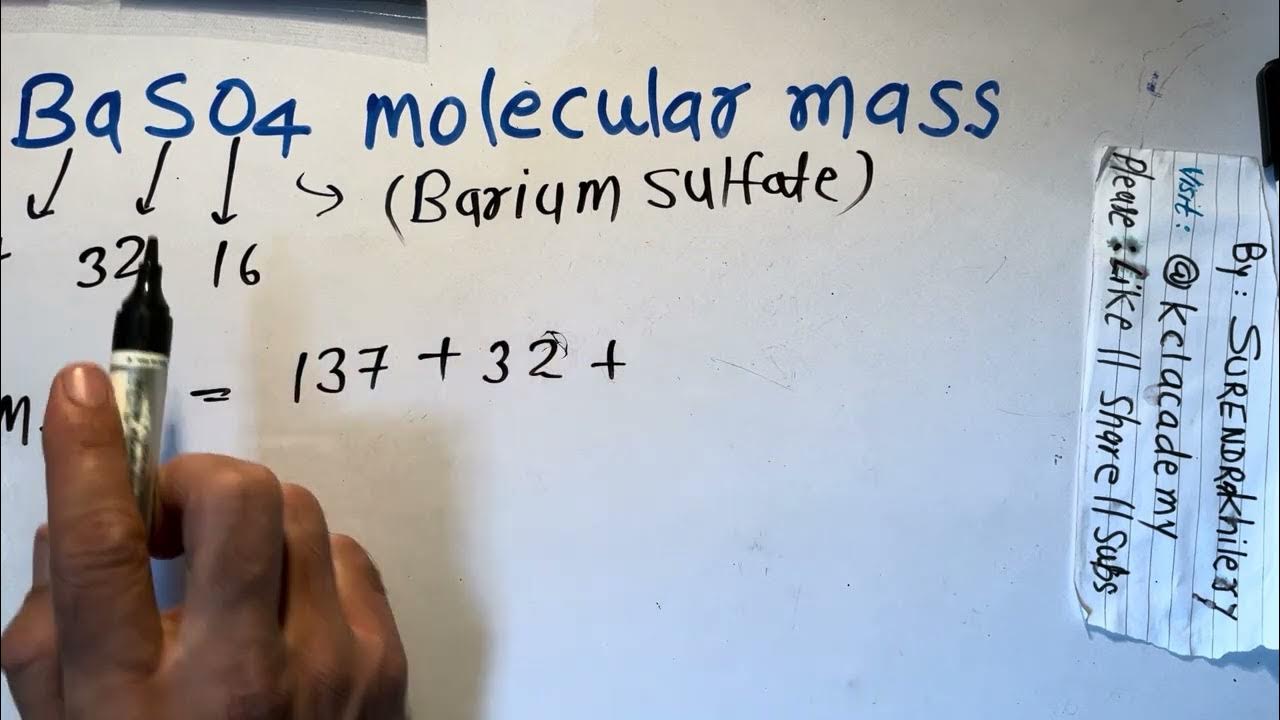 BaSO4 molecular mass
(Barium sulfate)
32 16
= 137 + 32 +
By: SURENDRA khilery
Visit: @kclacademy
please: Like || Share || Subs